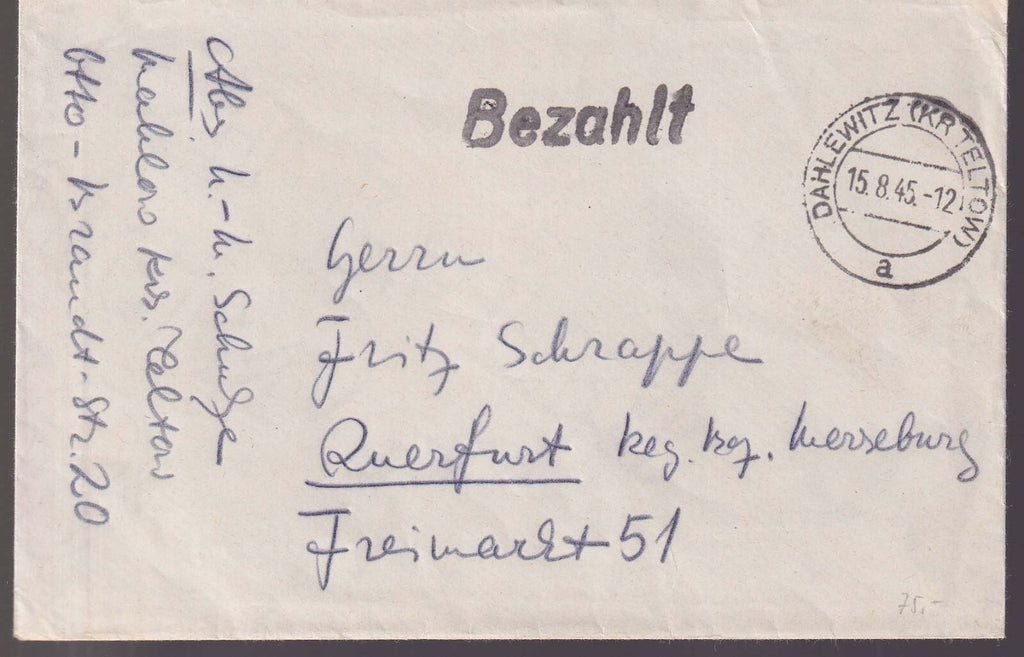 Bezahlt
DAHLEWITZ (KR TELTOW)
15.8.45.-12
a
Herrn
Fritz Schrappe
Querfurt Reg. Bez. Merseburg
Freimarkt 51
Abs. H.-H. Schulze
Mahlow Krs. Teltow
Otto-Brandt-Str. 20
75.-